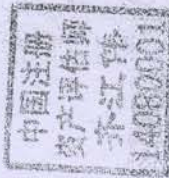 中国注册
资产评估师
齐江伟
14080001